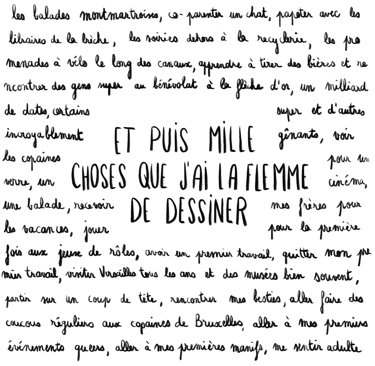 les balades montmartroises, co-parenter un chat, papoter avec les
libraires de la brèche, les soirées dehors à la recyclerie, les pro
menades à vélo le long des canaux, apprendre à tirer des bières et re
ncontrer des gens super au bénévolat à la flèche d'or, un milliard
de dates, certains super et d'autres
incroyablement gênants, voir
les copaines pour un
verre, un cinéma,
une balade, recevoir mes frères pour
les vacances, jouer pour la première
ET PUIS MILLE
CHOSES QUE J'AI LA FLEMME
DE DESSINER
fois aux jeux de rôles, avoir un premier travail, quitter mon pre
mier travail, visiter Versailles tous les ans et des musées bien souvent,
partir sur un coup de tête, rencontrer mes besties, aller faire des
coucous réguliers aux copaines de Bruxelles, aller à mes premiers
événements queers, aller à mes premières manifs, me sentir adulte